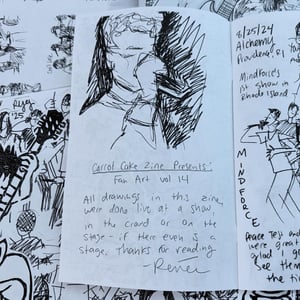 Carrot Cake Zine Presents:
Fan Art vol 14
All drawings in this zine
were done live at a show,
in the crowd or on the
stage - if there even is a
stage. Thanks for reading
-Renee
8/25/24
Alchemy
Providence, RI
Mindforce's
1st show in
Rhode Island
MINDFORCE
and
were great
glad I go
see them
the ti